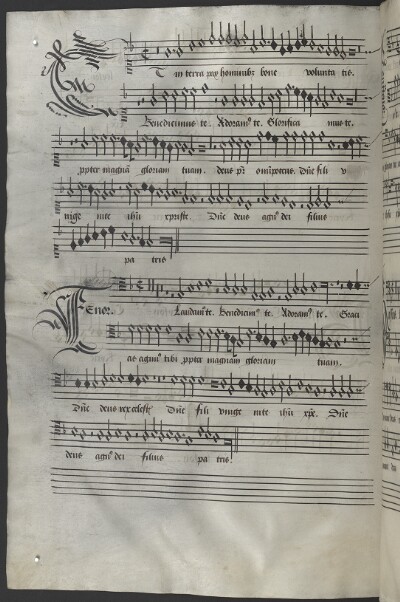 Et in terra pax hominibꝫ bone voluntatis.
Benedicimus te. Adoramꝰ te. Glorifica mus te.
ꝓpter magnā gloriam tuam. deus pr̄ om̄ipotens. Dn̄e fili v
nige nite ihū xpriste. Dn̄e deus agnꝰ dei filius
pa tris
Tenor. Laudamꝰ te. Benedicimꝰ te. Adoramꝰ te. Graci
as agimꝰ tibi ꝓpter magnam gloriam tuam.
Dn̄e deus rex celestꝭ Dn̄e fili vnige nite ihū xpē. Dn̄e
deus agnꝰ dei filius pa tris.